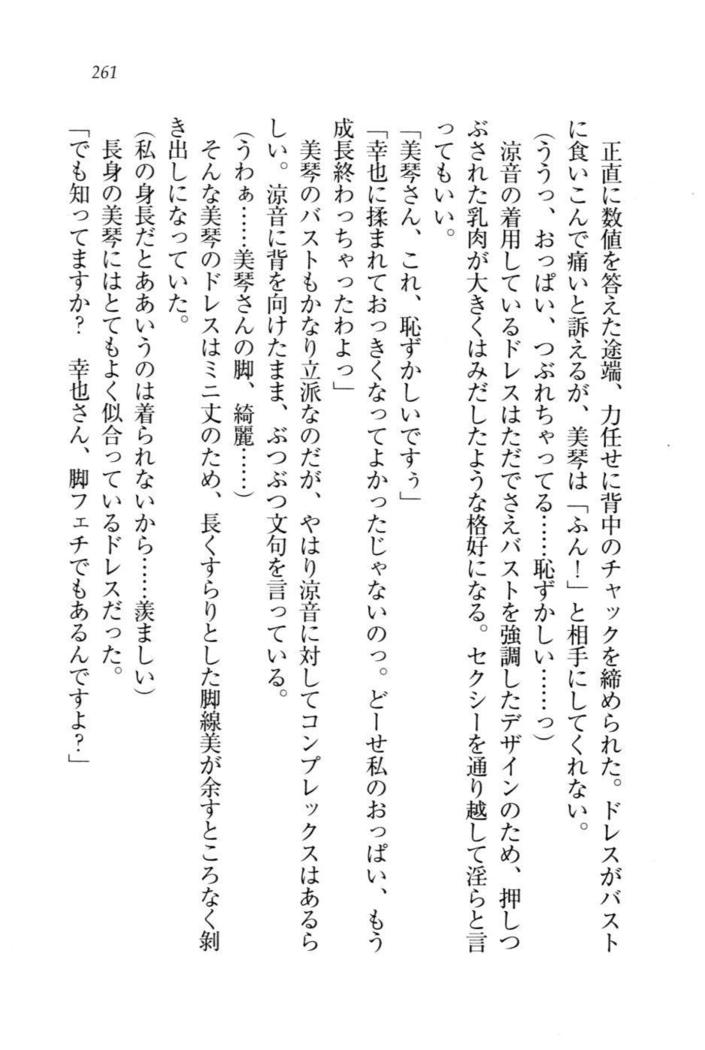 261
正直に数値を答えた途端、力任せに背中のチャックを締められた。ドレスがバスト
に食いこんで痛いと訴えるが、美琴は「ふん！」と相手にしてくれない。
（ううっ、おっぱい、つぶれちゃってる……恥ずかしい……っ）
涼音の着用しているドレスはただでさえバストを強調したデザインのため、押しつ
ぶされた乳肉が大きくはみだしたような格好になる。セクシーを通り越して淫らと言
ってもいい。
「美琴さん、これ、恥ずかしいですぅ」
「幸也に揉まれておっきくなってよかったじゃないのっ。どーせ私のおっぱい、もう
成長終わっちゃったわよっ」
美琴のバストもかなり立派なのだが、やはり涼音に対してコンプレックスはあるら
しい。涼音に背を向けたまま、ぶつぶつ文句を言っている。
（うわぁ……美琴さんの脚、綺麗……）
そんな美琴のドレスはミニ丈のため、長くすらりとした脚線美が余すところなく剝
き出しになっていた。
（私の身長だとああいうのは着られないから……羨ましい）
長身の美琴にはとてもよく似合っているドレスだった。
「でも知ってますか？　幸也さん、脚フェチでもあるんですよ？」